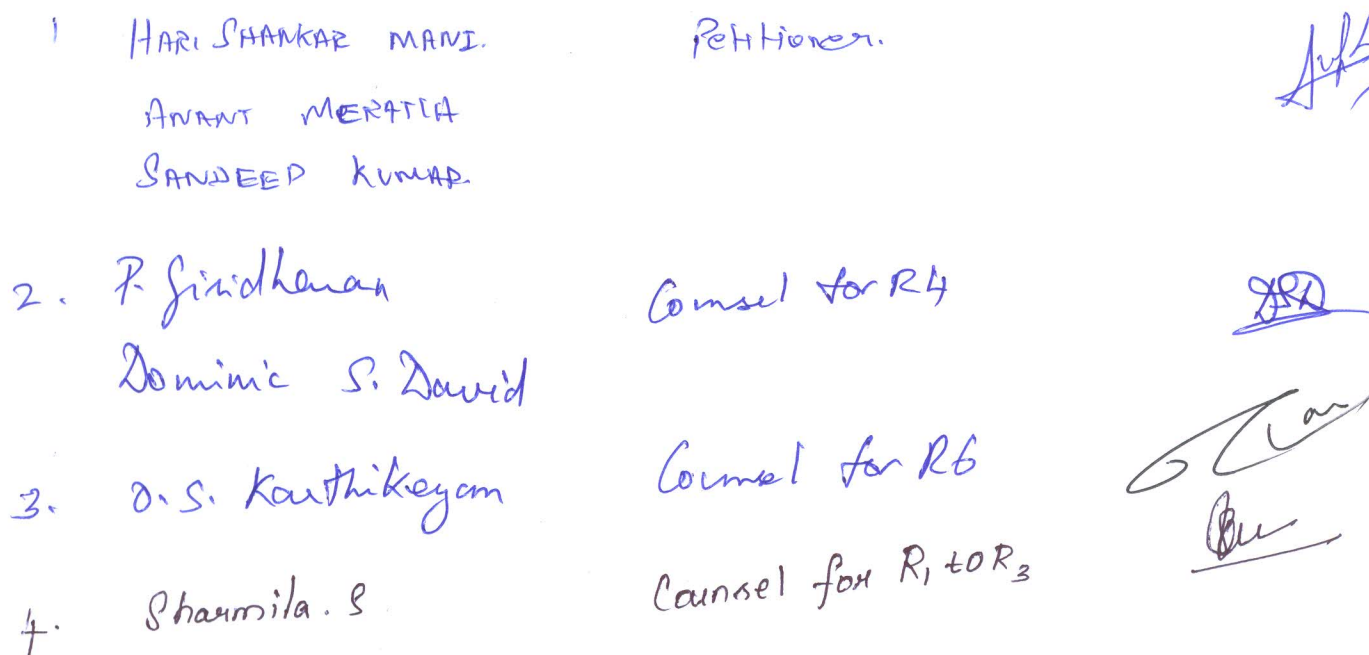 1 HARI SHANKAR MANI. Petitioner.
ANANT MERATIA
SANDEEP KUMAR
2. P. Giridharan Counsel for R4
Dominic S. David
3. O.S. Karthikeyan Counsel for R6
4. Sharmila. S Counsel for R1 to R3